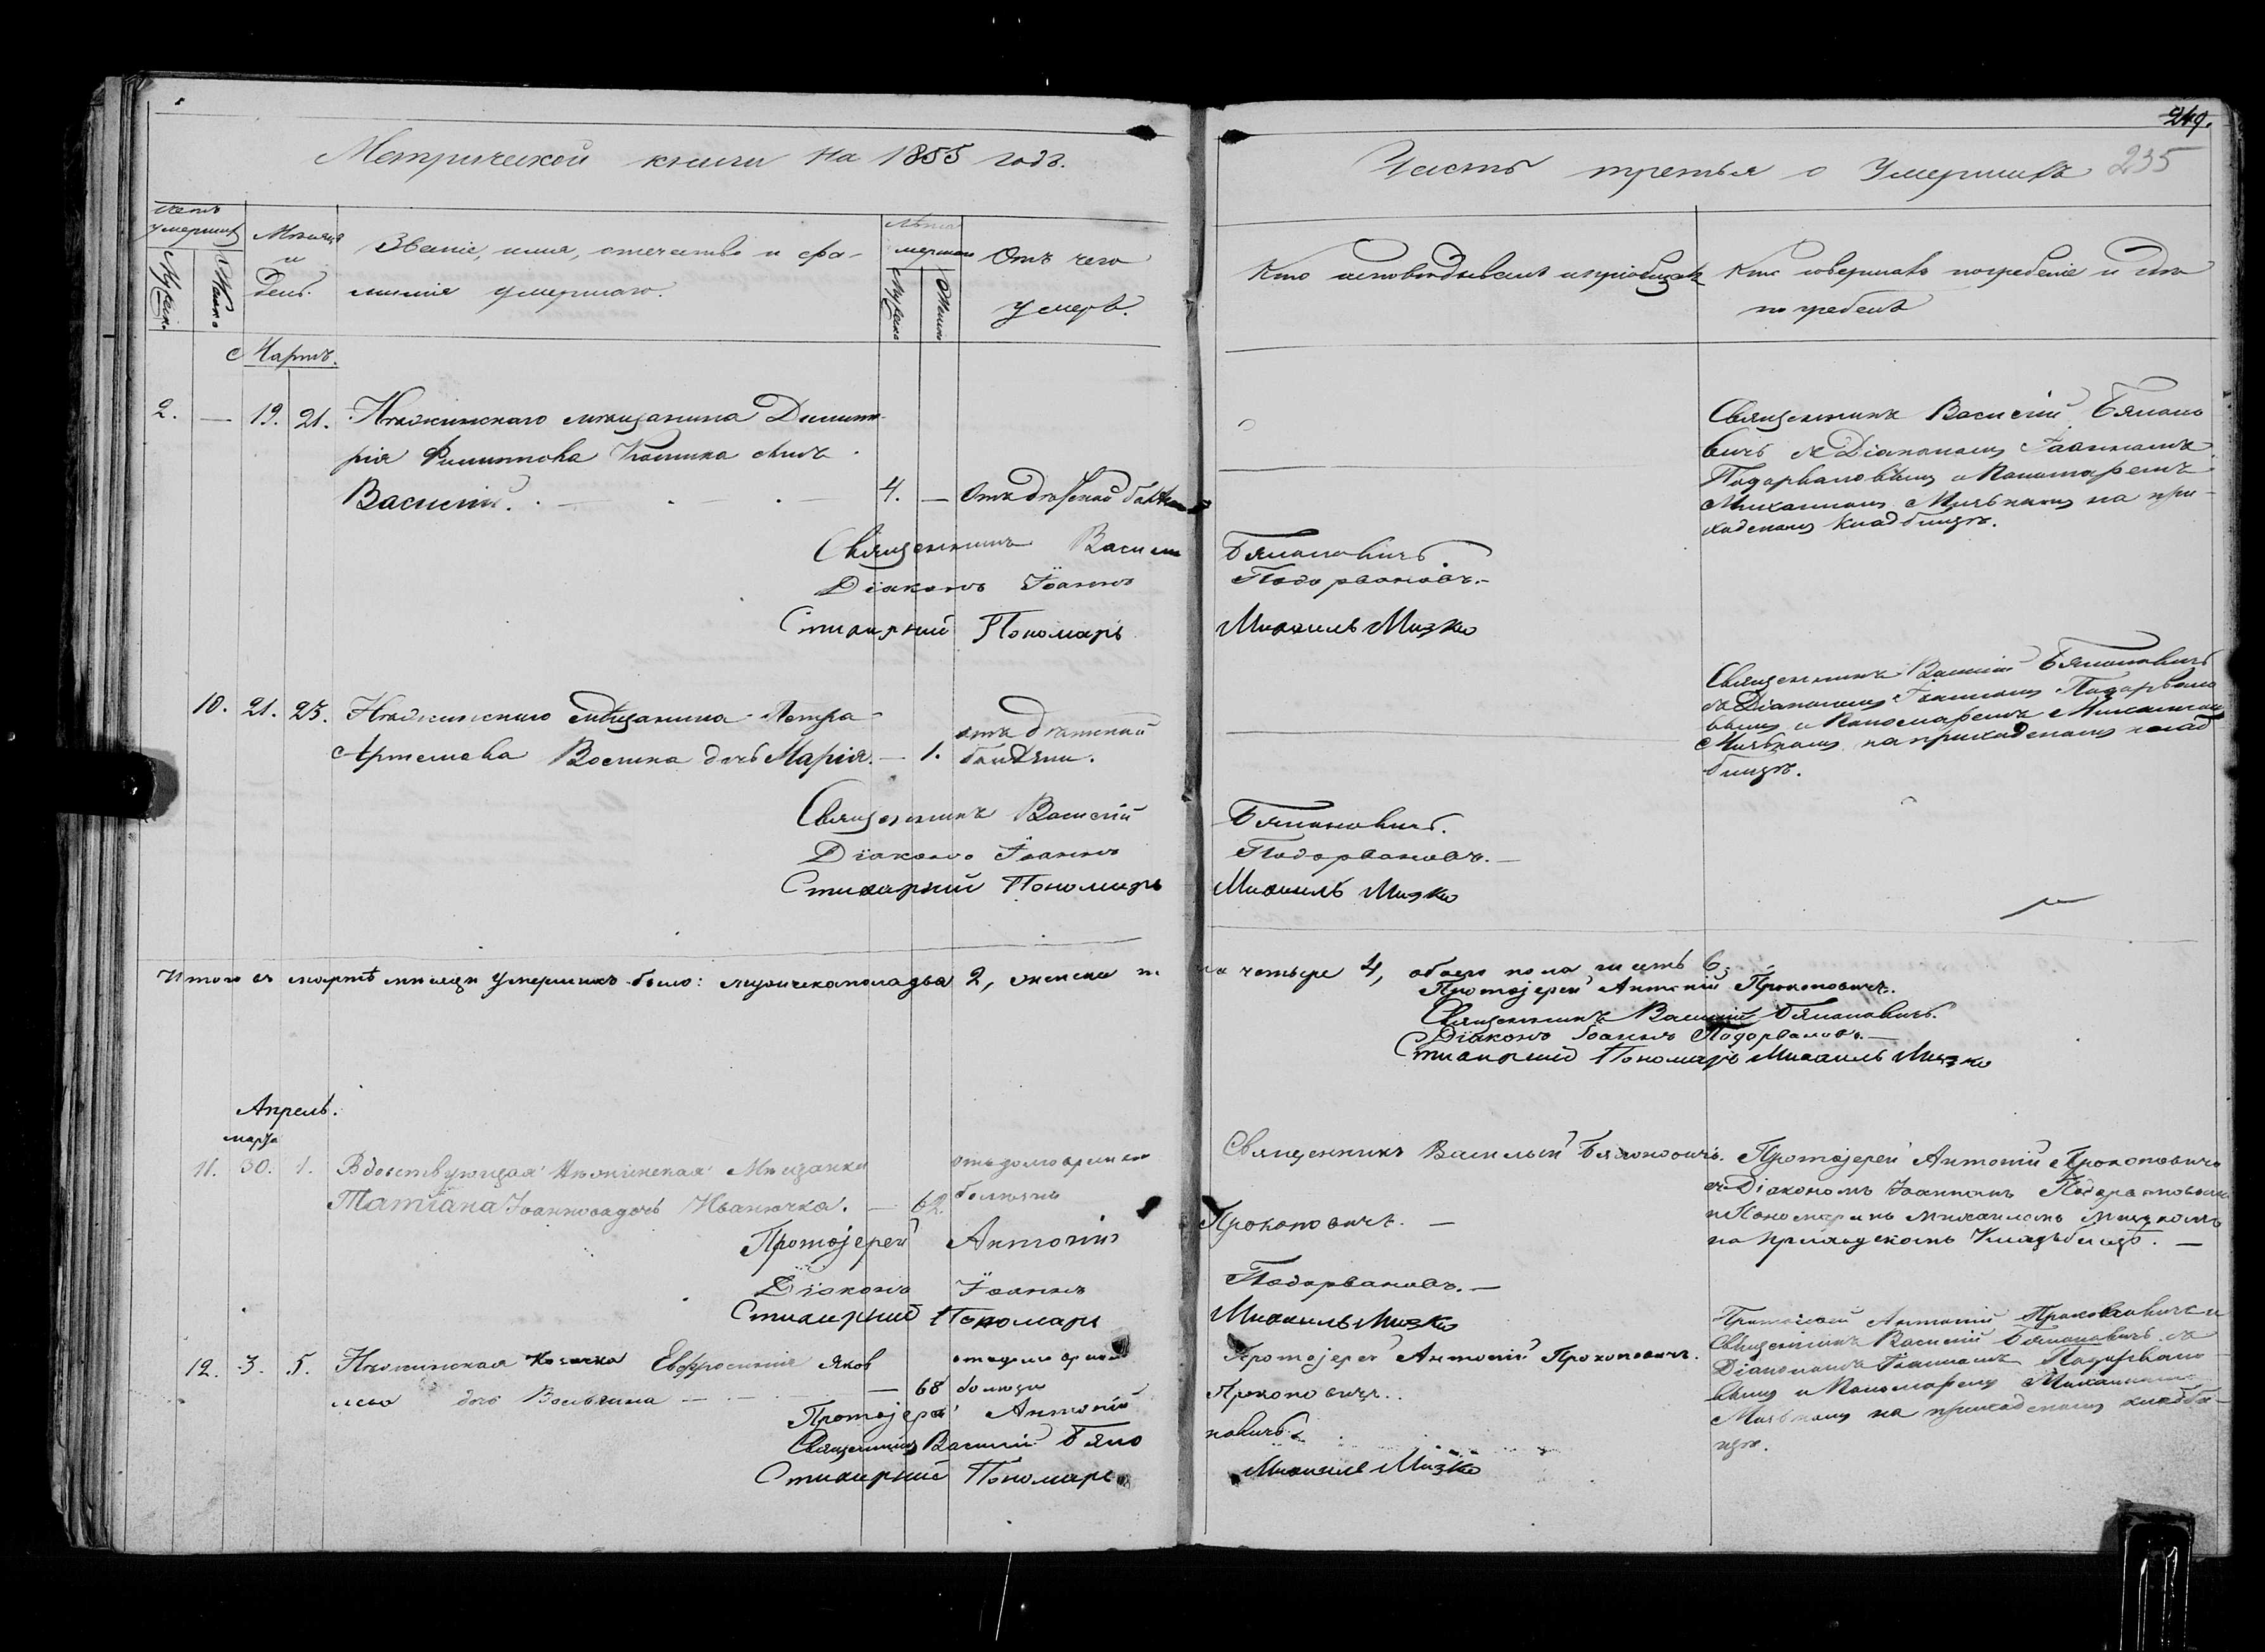 249.
Метрической книги на 1855 годъ.
Часть третья о Умершихъ 235
Счетъ умершихъ
Мужеска
Женска
Мѣсяцъ и День.
Званіе, имя, отечество и фа-
милія умершаго.
Лѣта умершаго
Мужеска
Женска
Отъ чего
умеръ.
Кто исповѣдывалъ и пріобщалъ
Кто совершалъ погребеніе и гдѣ
погребенъ
Мартъ.
2. — 19. 21. Нѣжинскаго мѣщанина Димит-
рія Филиппова сынъ
Василій. — 4. — Отъ
Священникъ Василій Бяло
вичъ съ Діакономъ Іоанномъ
Подорвановымъ и Пономаремъ
Михаиломъ Мизькомъ на при-
ходскомъ кладбищѣ.
Священникъ Василій Бялоновичъ
Діаконъ Іоаннъ Подорвановъ.—
Стихарный Пономарь Михаилъ Мизко
10. 21. 23. Нѣжинскаго мѣщанина Петра
Артемова дочь Марія. — 1. отъ
болѣзни.
Священникъ Василій Бялоновичъ
съ Діакономъ Іоанномъ Подорвано
вымъ и Пономаремъ Михаиломъ
Мизькомъ на приходскомъ клад
бищѣ.
Священникъ Василій Бялоновичъ.
Діаконъ Іоаннъ Подорвановъ.—
Стихарный Пономарь Михаилъ Мизко
Итого въ мартѣ мѣсяцѣ умершихъ было: мужеска пола два 2, женска четыре 4, обоего пола шесть 6.
Протоіерей Антоній Прокоповичъ.
Священникъ Василій Бялоновичъ.
Діаконъ Іоаннъ Подорвановъ.—
Стихарный Пономарь Михаилъ Мизко
Апрель.
марта
11. 30. 1. Вдовствующая Нѣжинская Мѣщанка
Татіана Іоаннова дочь Иванючка. — 62.
отъ долговремен
болѣзнь
Священникъ Василій Бялоновичъ.
Протоіерей Антоній Прокоповичъ
съ Діакономъ Іоанномъ Подорвановымъ
и Пономаремъ Михаиломъ Мизькомъ
на приходскомъ Кладбищѣ. —
Протоіерей Антоній Прокоповичъ. —
Діаконъ Іоаннъ Подорвановъ.—
Стихарный Пономарь Михаилъ Мизко
12. 3. 5. Нѣжинская Козачка Евфросинія Яков
лева дочь — 68
болѣзни
Протоіерей Антоній Прокоповичъ.
Протоіерей Антоній Прокоповичъ и
Священникъ Василій Бялоновичъ съ
Діакономъ Іоанномъ Подорвано-
вымъ и Пономаремъ Михаиломъ
Мизькомъ на приходскомъ кладби-
щѣ.
Протоіерей Антоній Прокоповичъ.
Священникъ Василій Бялоновичъ.
Стихарный Пономарь Михаилъ Мизко